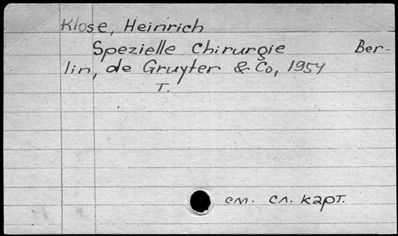 Klose, Heinrich
Spezielle Chirurgie Ber-
lin, de Gruyter & Co, 1954
T.
см. сл. карт.